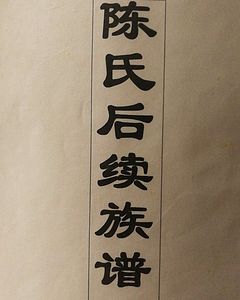 陈氏后续族谱